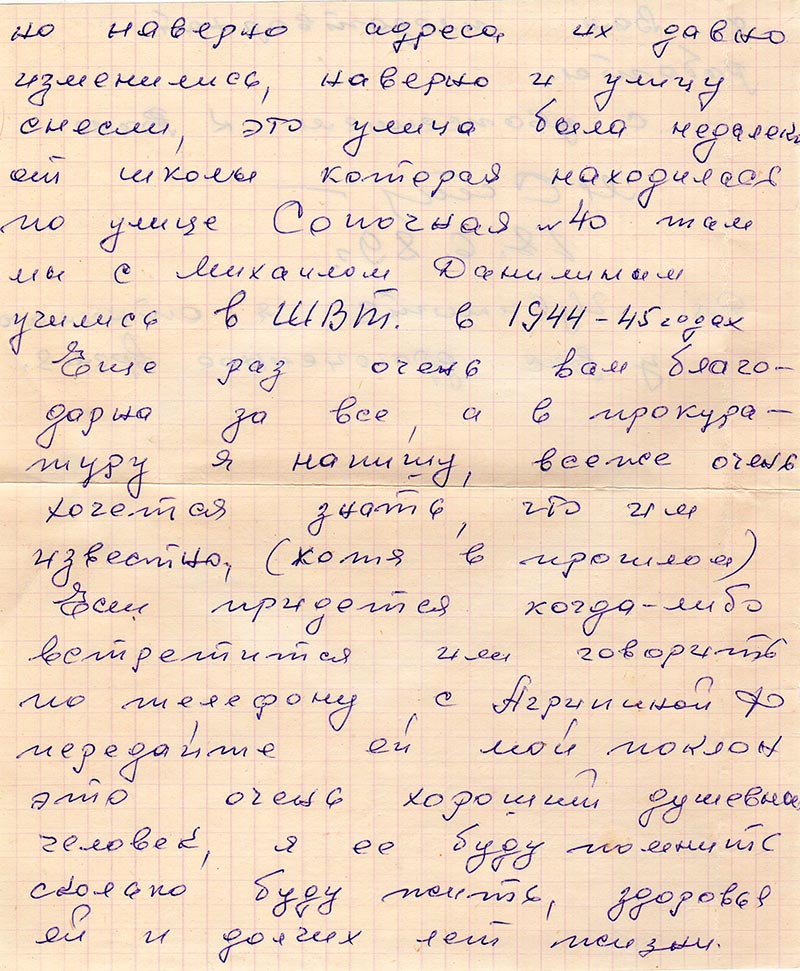 но наверно адреса их давно
изменились, наверно и улицу
снесли, это улица была недалеко
от школы которая находилась
по улице Сопочная №40 там
мы с Михаилом Данилиным
учились в ШВТ. в 1944-45 годах
Еще раз очень вам благо-
дарна за все, а в прокура-
туру я напишу, всеже очень
хочется знать, что им
известно, (хотя в прошлом)
Если придется когда-либо
встретится или говорить
по телефону, с Агрипиной Ф
передайте ей мой поклон
это очень хороший душевный
человек, я ее буду помнить
сколько буду жить, здоровья
ей и долгих лет жизни.